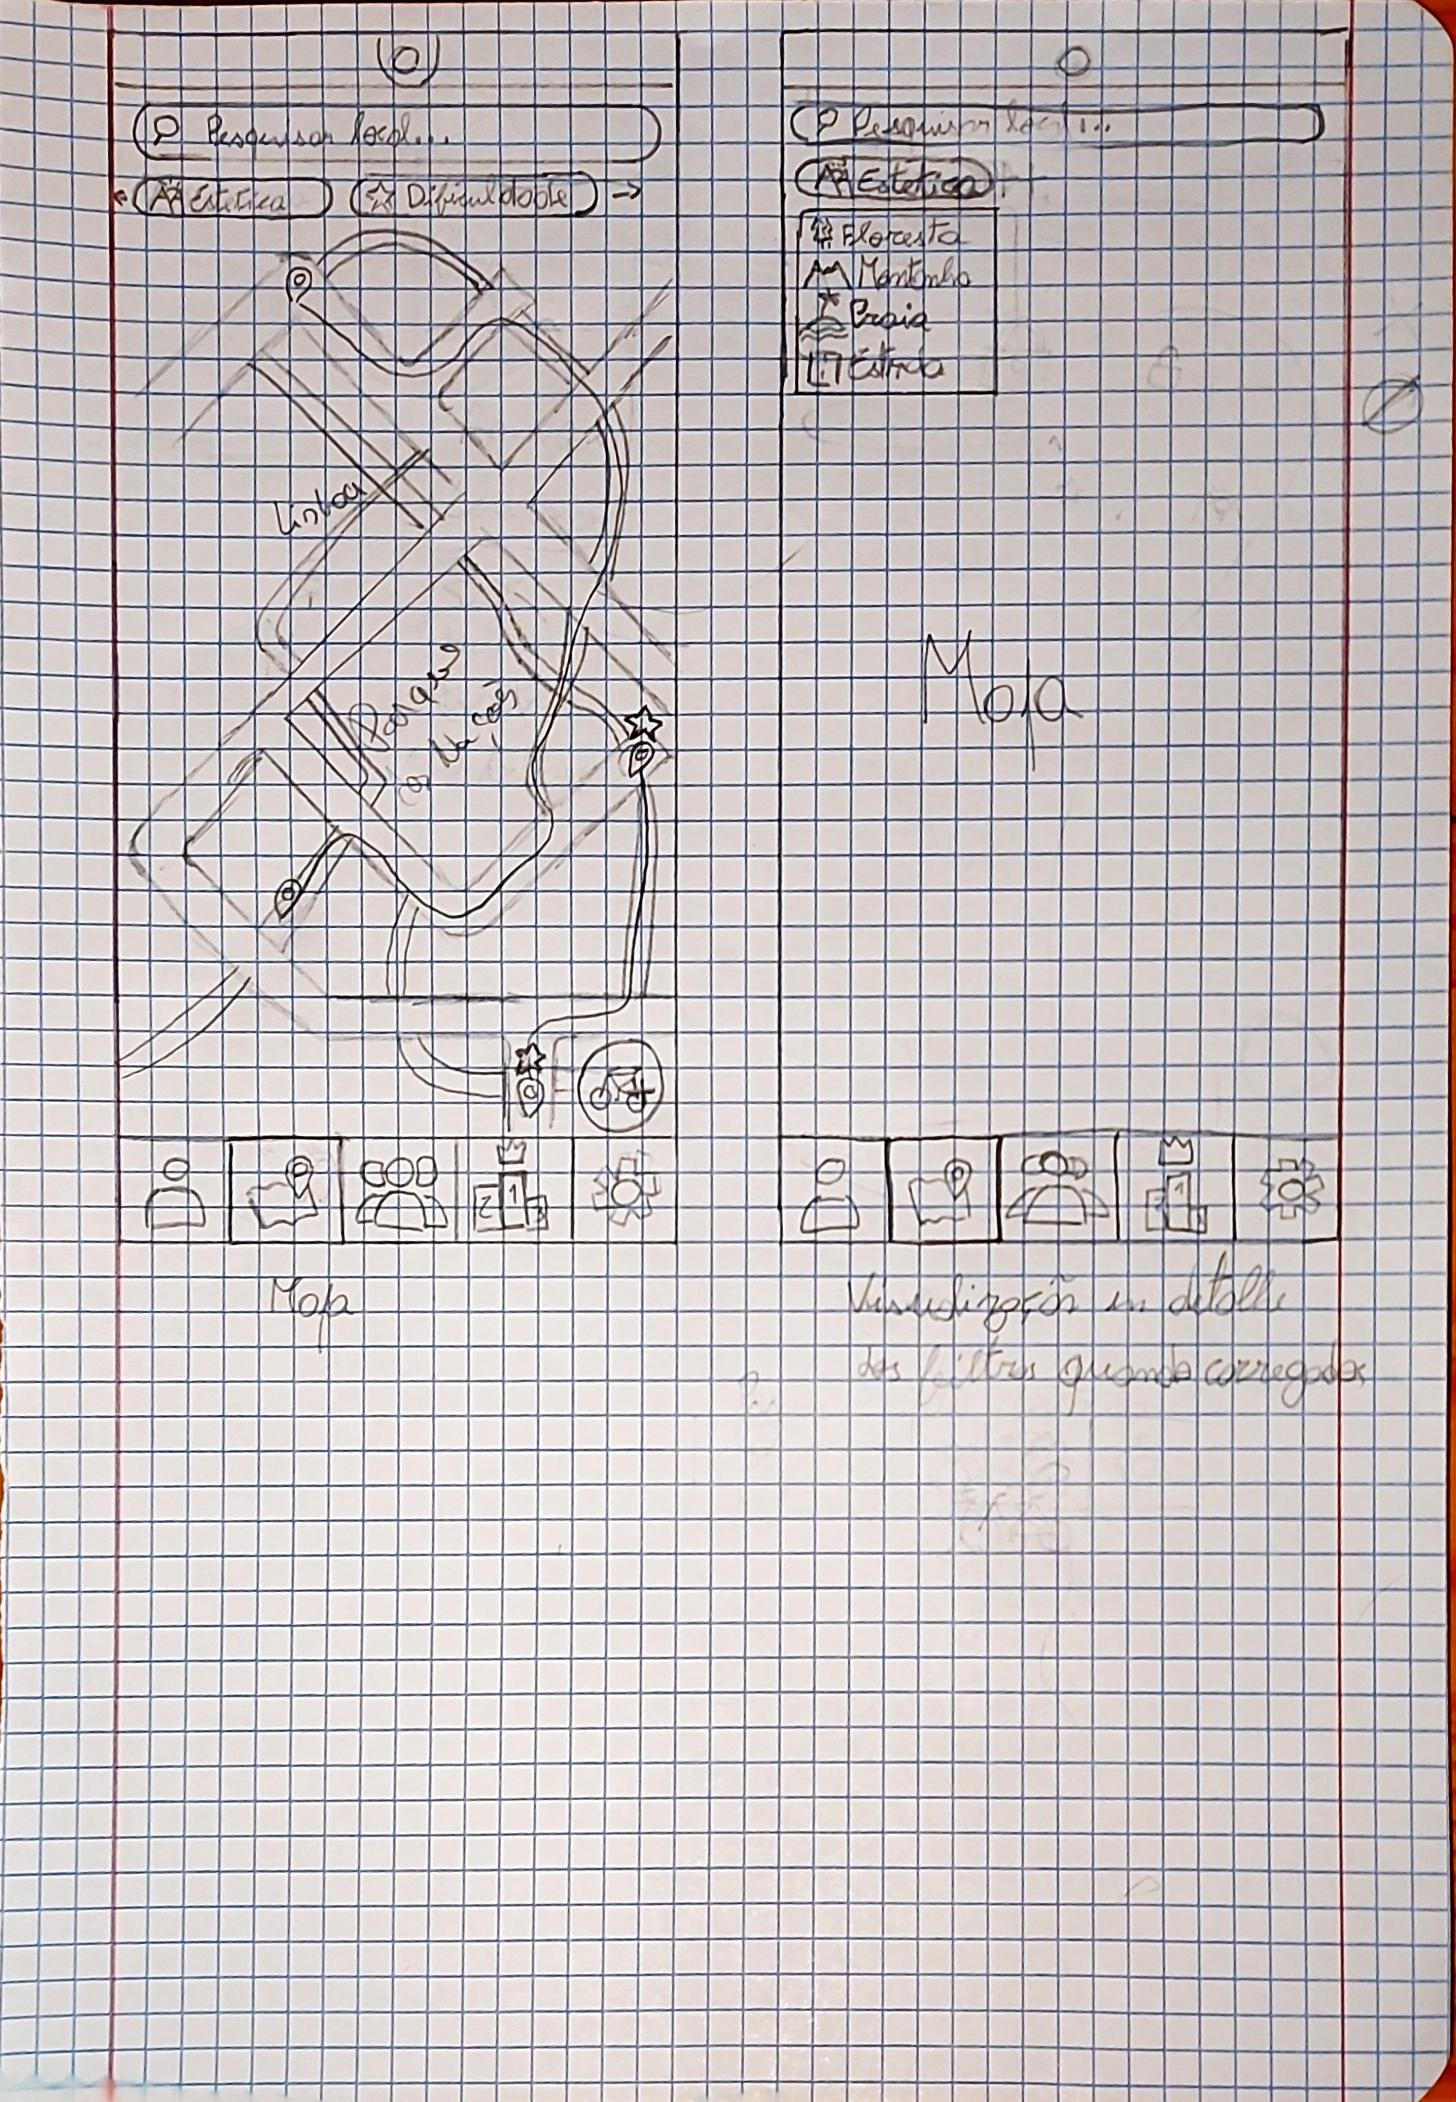 Pesquisar local...
Estética
Dificuldade
Lisboa
Parque
das Nações
2 1 3
Mapa
Pesquisar local...
Estética
Floresta
Montanha
Praia
Estrada
Mapa
2 1 3
Visualização em detalhe
dos filtros quando carregados